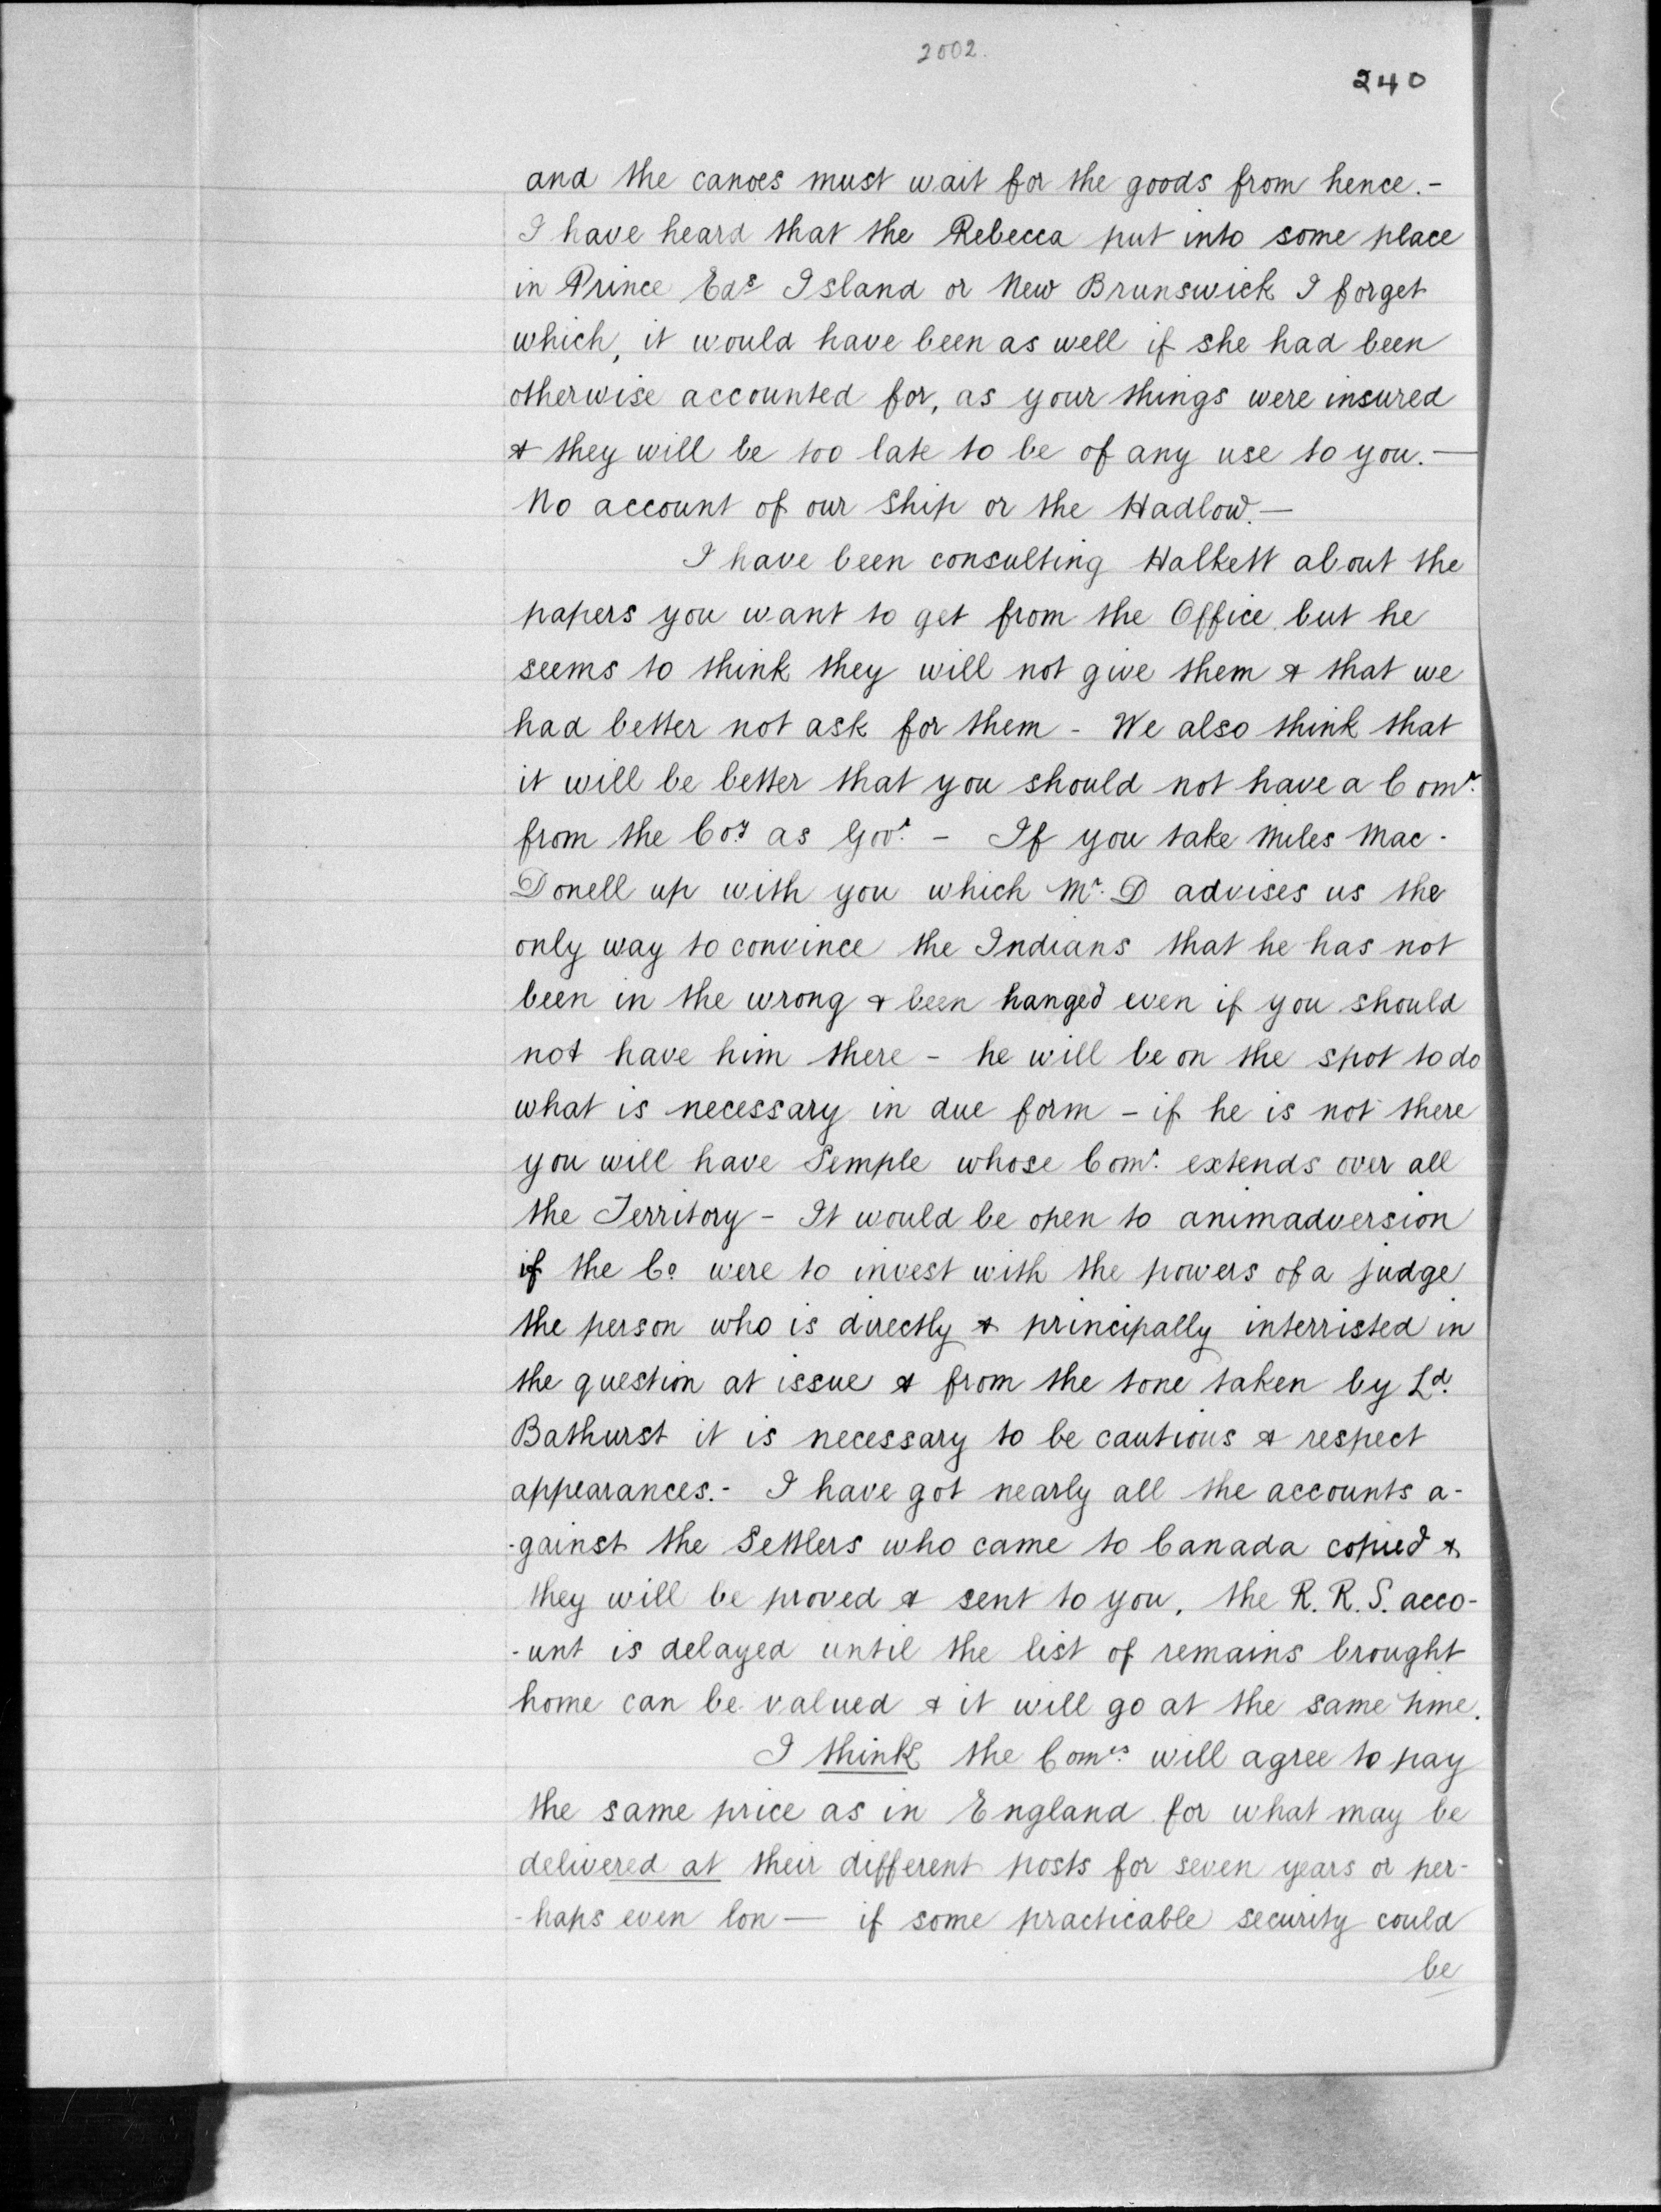 2002.
240
and the canoes must wait for the goods from hence.-
I have heard that the Rebecca put into some place
in Prince Eds Island or New Brunswick I forget
which, it would have been as well if she had been
otherwise accounted for, as your things were insured
& they will be too late to be of any use to you.—
No account of our ship or the Hadlow.—
I have been consulting Halkett about the
papers you want to get from the Office but he
seems to think they will not give them & that we
had better not ask for them - We also think that
it will be better that you should not have a Comn.
from the Coy as Govr. - If you take Miles Mac-
Donell up with you which Mr. D advises us the
only way to convince the Indians that he has not
been in the wrong & been hanged even if you should
not have him there - he will be on the spot to do
what is necessary in due form - if he is not there
you will have Semple whose Comn. extends over all
the Territory - It would be open to animadversion
if the Co were to invest with the powers of a judge
the person who is directly & principally interristed in
the question at issue & from the tone taken by Ld.
Bathurst it is necessary to be cautious & respect
appearances.- I have got nearly all the accounts a-
-gainst the Settlers who came to Canada copied &
they will be proved & sent to you, the R. R. S. acco-
-unt is delayed until the list of remains brought
home can be valued & it will go at the same time.
I think the Comes. will agree to pay
the same price as in England for what may be
delivered at their different posts for seven years or per-
-haps even lon — if some practicable security could
be